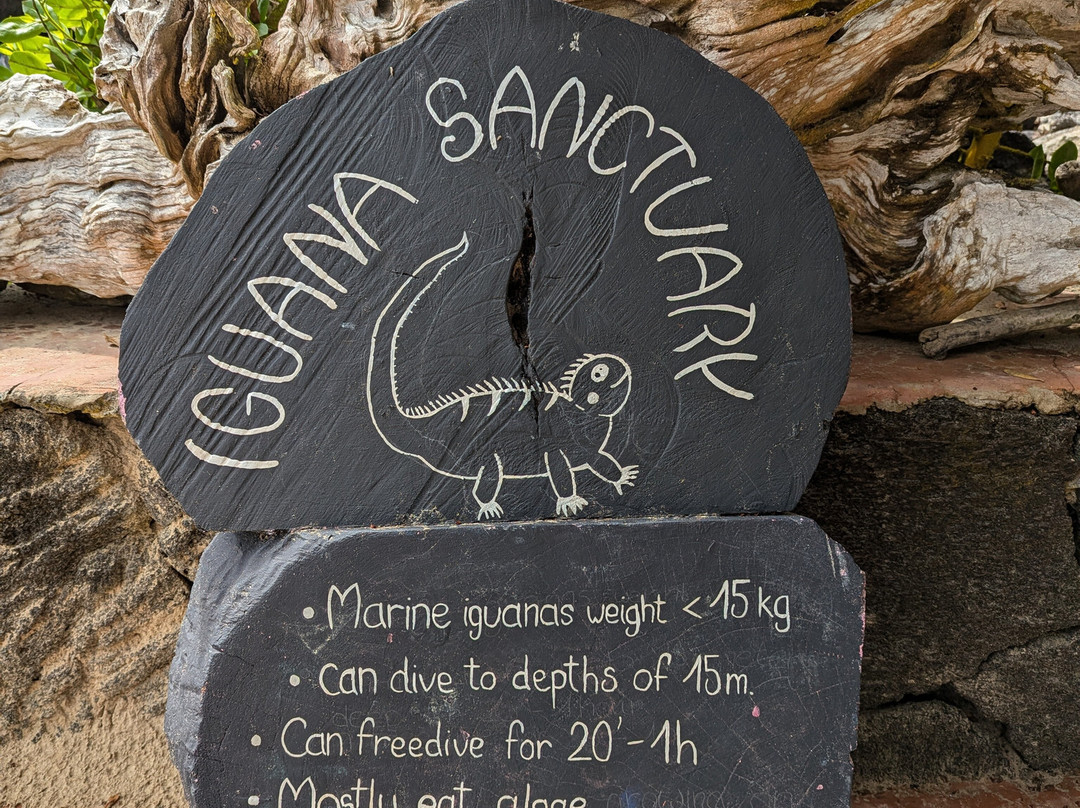 IGUANA SANCTUARY
• Marine iguanas weight <15kg
• Can dive to depths of 15m.
• Can freedive for 20'-1h
• Mostly eat algae